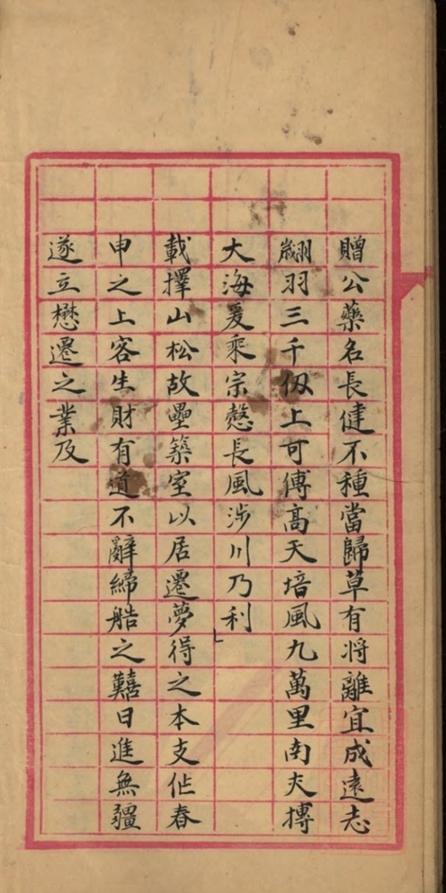 贈公藥名長健不種當歸草有將離宜成遠志
翽羽三千仭上可傅高天培風九萬里南夫摶
大海爰乘宗愨長風涉川乃利
載擇山松故壘築室以居遷夢得之本支佀春
申之上客生財有道不辭締造之囏日進無疆
遂立懋遷之業及